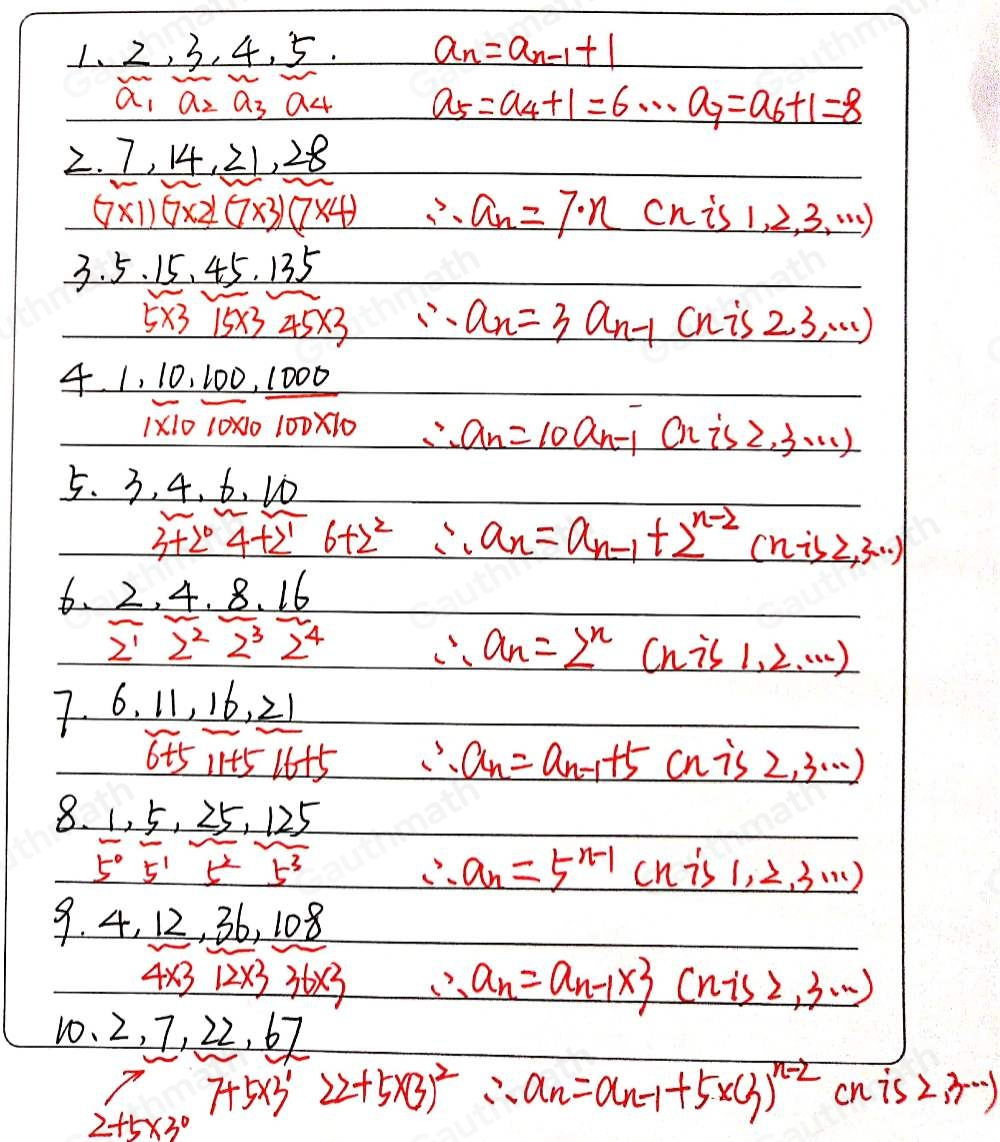 1、2,3,4,5. an=an-1+1
a1 a2 a3 a4 a5=a4+1=6…a7=a6+1=8
2.7,14,21,28
(7×1)(7×2)(7×3)(7×4) ∴an=7·n (n is 1,2,3,…)
3.5.15、45.135
5×3 15×3 45×3 ∴an=3an-1 (n is 2.3,…)
4.1,10,100,1000
1×10 10×10 100×10 ∴an=10an-1 (n is 2,3…)
5、3,4,6,10
3+2⁰ 4+2¹ 6+2² ∴an=an-1+2ⁿ⁻² (n is 2,3…)
6、2,4.8、16
2¹ 2² 2³ 2⁴ ∴an=2ⁿ (n is 1,2,…)
7.6,11,16,21
6+5 11+5 16+5 ∴an=an-1+5 (n is 2,3…)
8.1,5,25,125
5⁰ 5¹ 5² 5³ ∴an=5ⁿ⁻¹ (n is 1,2,3…)
9.4,12,36,108
4×3 12×3 36×3 ∴an=an-1×3 (n is 2,3…)
10、2,7,22,67
2+5×3⁰ 7+5×3¹ 22+5×(3)² ∴an=an-1+5×(3)ⁿ⁻² (n is 2,3…)
Gauthmath